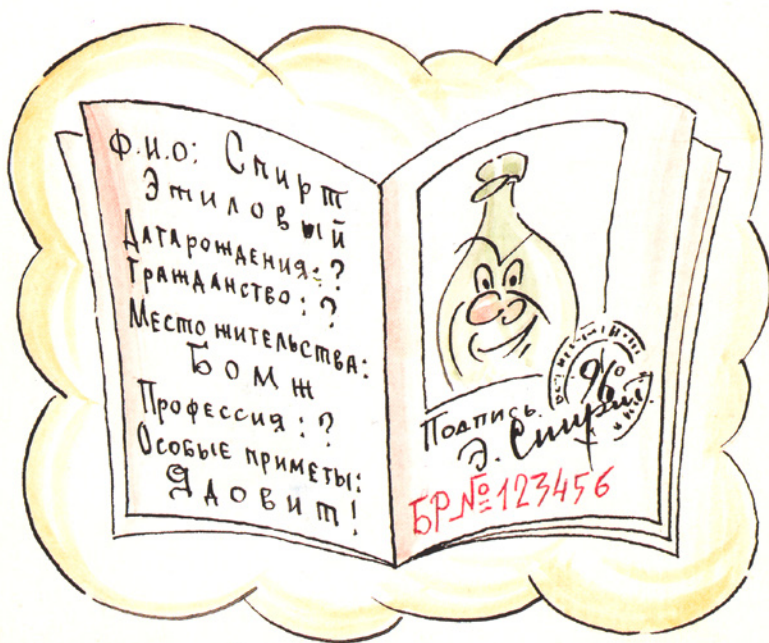 Ф.И.О: Спирт
Этиловый
Дата рождения: ?
Гражданство: ?
Место жительства:
Бомж
Профессия: ?
Особые приметы:
Ядовит!
96°
Подпись.
Э. Спирт
БР № 123456